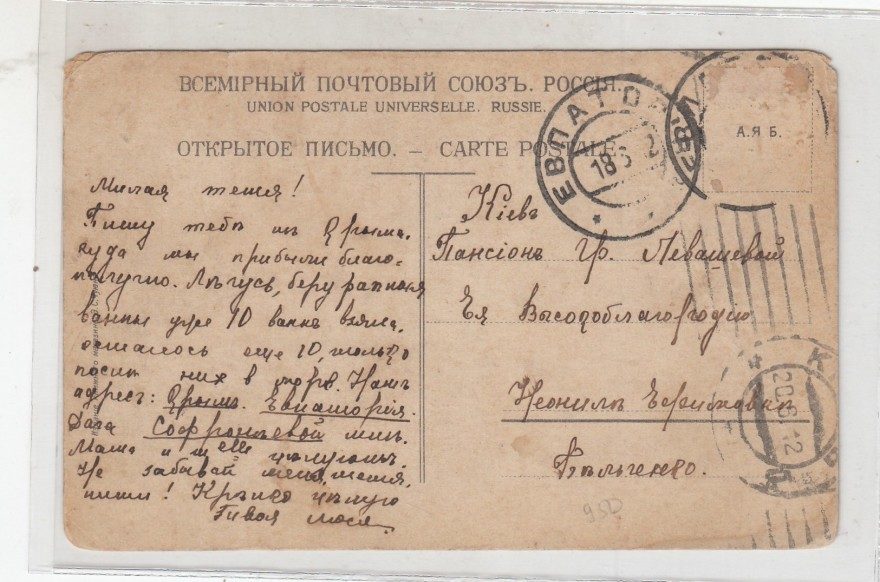 ВСЕМІРНЫЙ ПОЧТОВЫЙ СОЮЗЪ. РОССІЯ.
UNION POSTALE UNIVERSELLE. RUSSIE.
ОТКРЫТОЕ ПИСЬМО. – CARTE POSTALE.
ЕВПАТОР
18 6 12
А.Я Б.
Милая тетя!
Пишу тебѣ изъ Крыма,
куда мы прибыли благо-
получно. Лѣчусь, беру
ванны уже 10 ваннъ взяла,
осталось еще 10, только
послѣ них в море. Нашъ
адресъ: Крымъ. Евпаторія.
Дача Софроньевой
Маша и цѣлуютъ.
Не забывай меня, тетя,
пиши! Крѣпко цѣлую
Твоя
Кіевъ
Пансіонъ Гр. Левашевой
Ея Высокоблагородію
Неонилѣ
Бѣльченко.
20 6 12
930